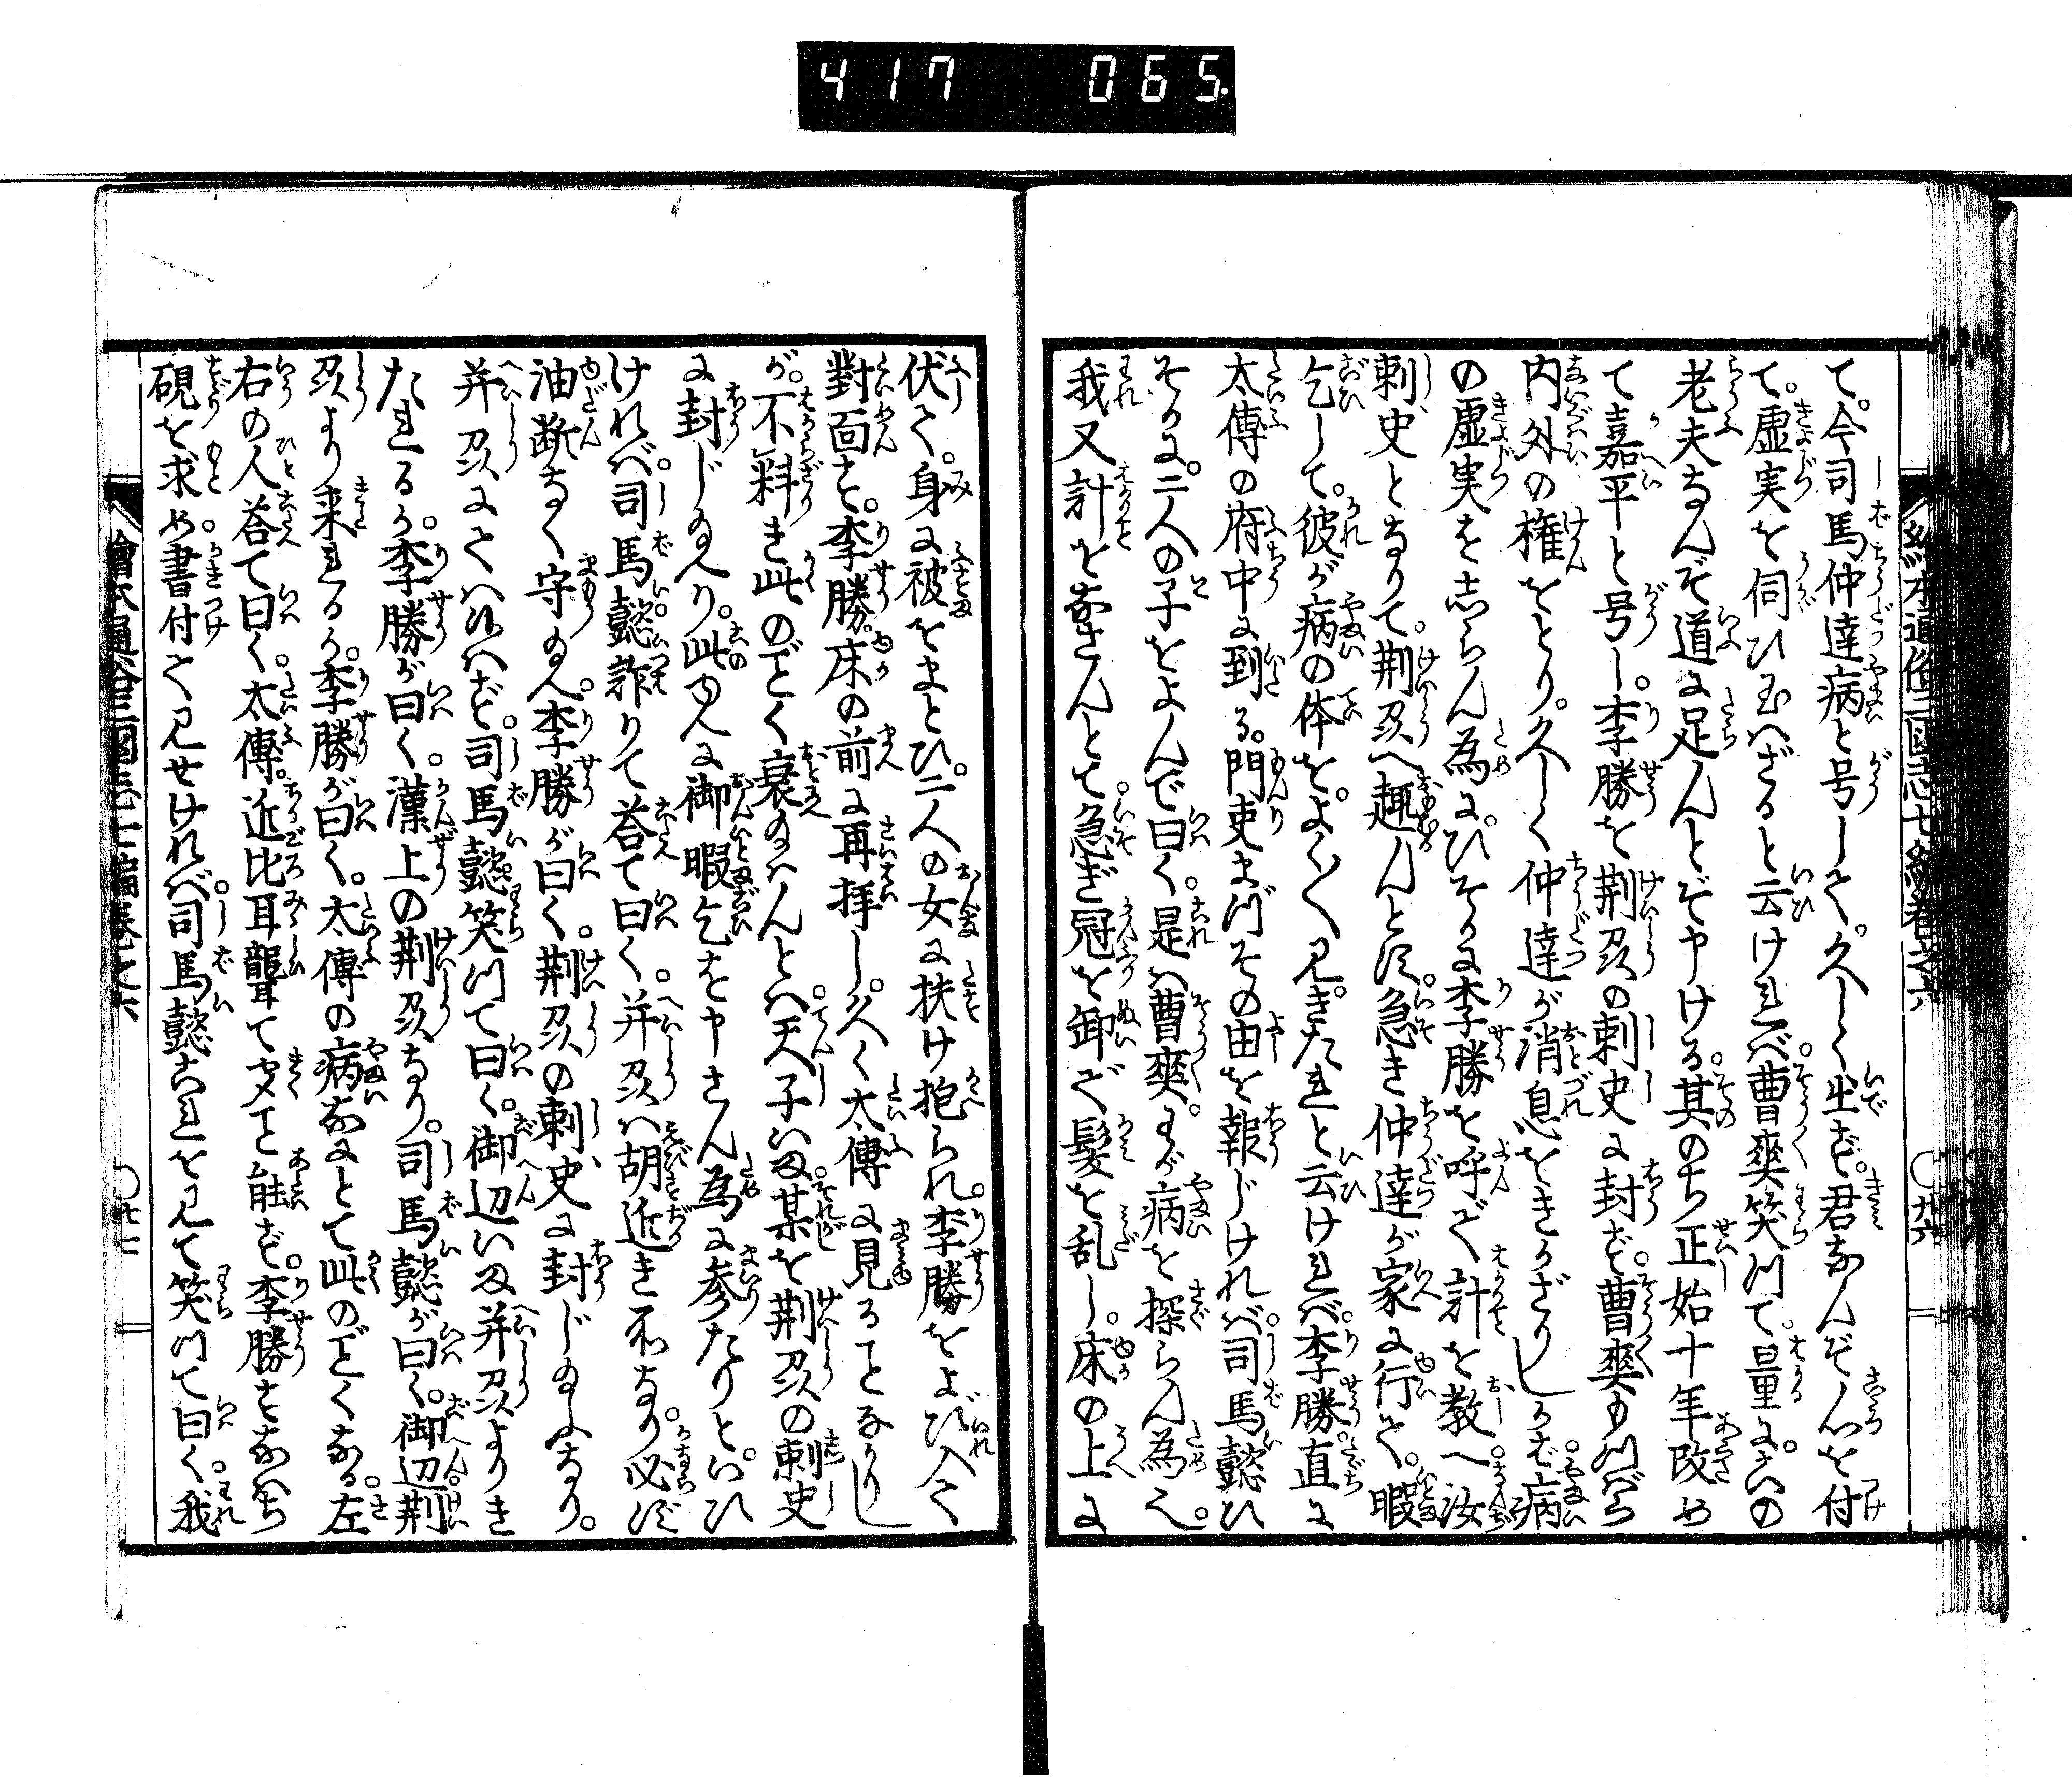 417 065.
絵本通俗三国志七編巻之六
て。今司馬仲達病と号して。久しく出ず。君なんぞ心を付
て。虚実を伺ひ玉へざると云ければ。曹爽笑つて。量に。一の
老夫なんぞ道に足んとぞ申ける。其のち正始十年改め
て嘉平と号し。李勝を荆州の刺史に封ず。曹爽もつぱら
内外の権をとり。久しく仲達が消息をきかざりしかば。病
の虚実をしらん為に。ひそかに李勝を呼で計を教へ。汝
刺史となりて。荆州へ趣んとす。急き仲達が家に行て。暇
乞して。彼が病の体を。よく〱見きたれと云ければ。李勝。直に
太傅の府中に到る。門吏まづその由を報じければ。司馬懿ひ
そかに。二人の子をよんで曰く。是は曹爽。わが病を探らん為之。
我又計をなさんとて。急ぎ冠を卸ぎ髪を乱し。床の上に
伏て。身に被をまとひ。二人の女に扶け抱られ。李勝をよび入て
對面す。李勝。床の前に再拝し。久く太傅に見ることなかりし
が。不料き此のごとく衰玉はんとは。天子いま某を荆州の刺史
に封じ玉へり。此ゆへに御暇乞を申さん為に参たりと。いひ
ければ。司馬懿。詐りて荅て曰く。并州は胡近き所なり。必ず
油断なく守玉へ。李勝が曰く。荆州の刺史に封じ玉ふなり。
并州にては候はず。司馬懿。笑つて曰く。御辺いま并州よりき
たれるか。李勝が曰く。漢上の荆州なり。司馬懿が曰く。御辺荆
州より来れるか。李勝が曰く。太傅の病なにとて此のごとくなる。左
右の人荅て曰く。太傅。近比耳聾て聞こと能ず。李勝すなはち
硯を求め。書付て見せければ。司馬懿これを見て笑つて曰く。我
繪本通俗三國志七編巻之六